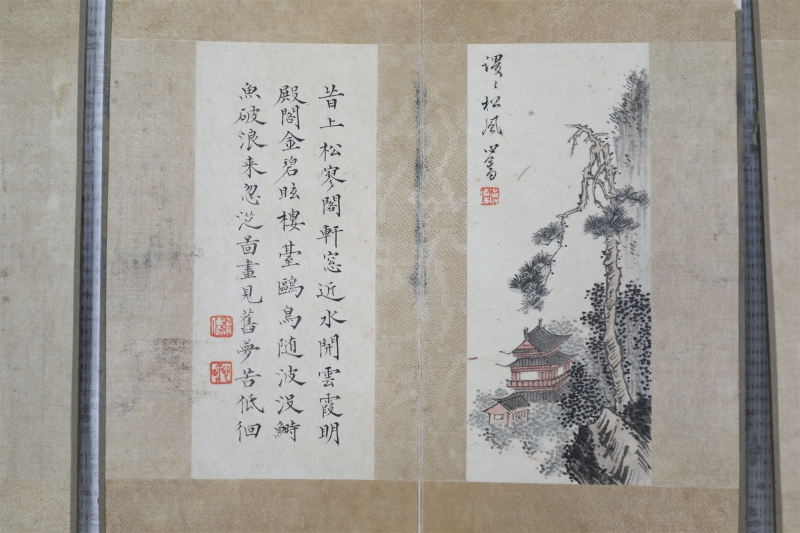 謖〻松風 心畬
昔上松寥閣軒窓近水開雲霞明
殿閣金碧眩樓臺鷗鳥随波没鰣
魚破浪来忽従啚畫見舊夢苦低徊